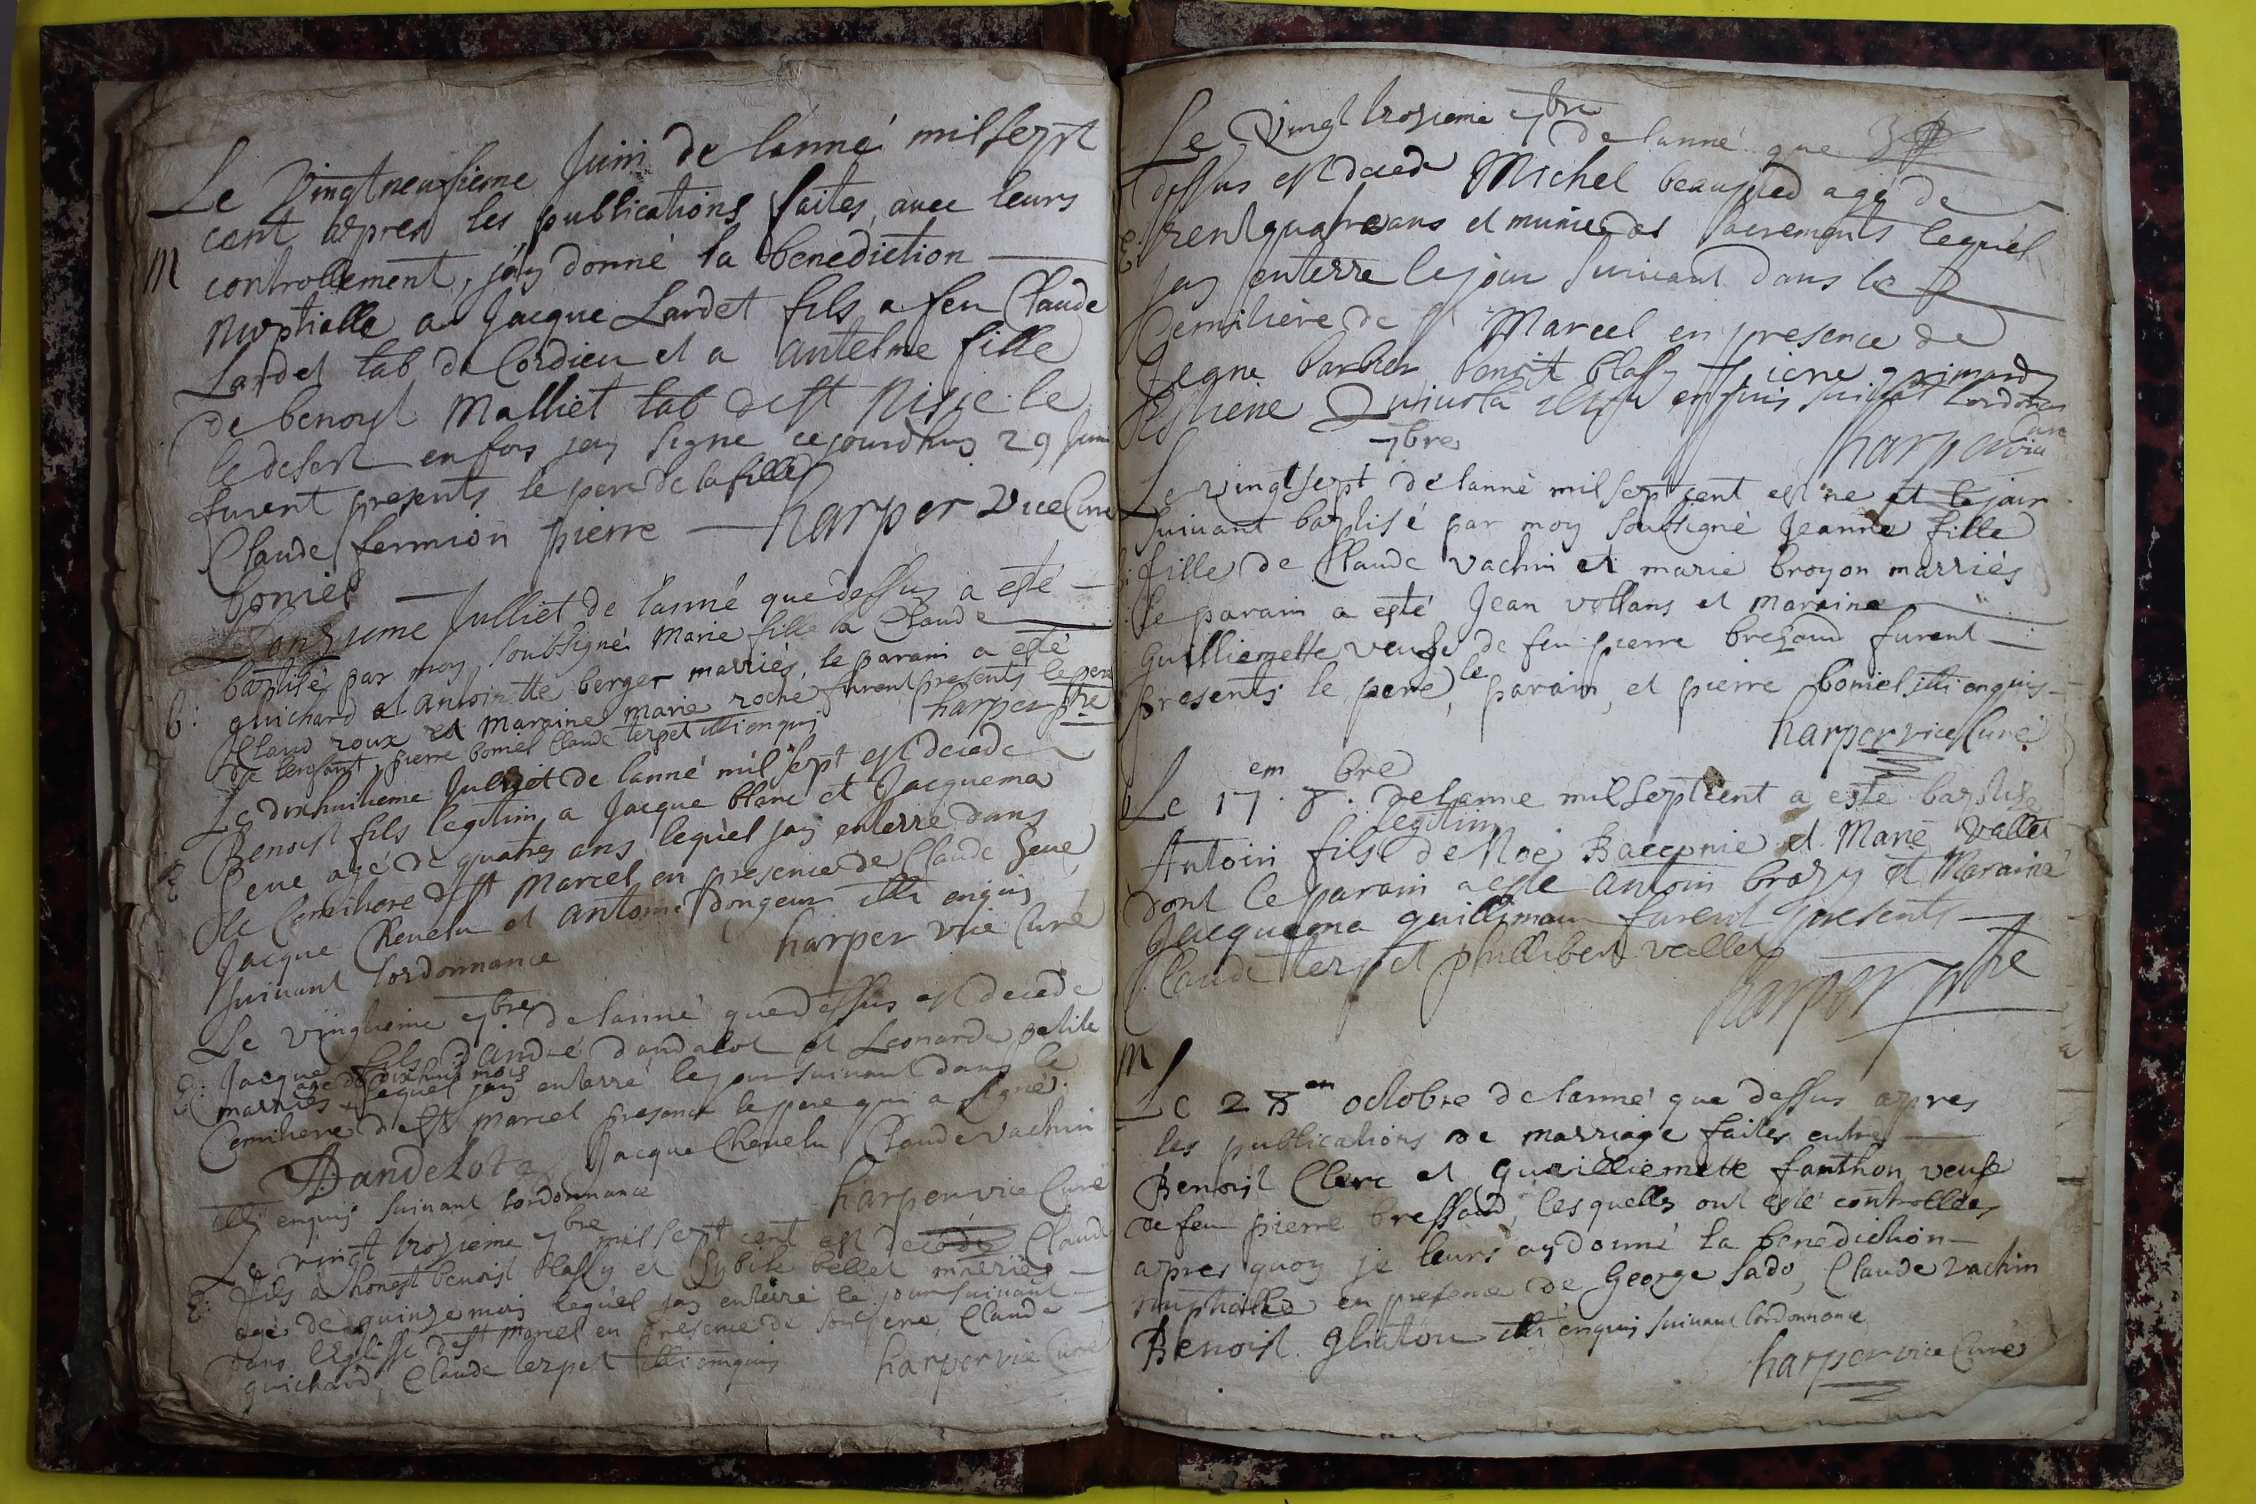 Le Vingtneufieme Juin de lanné mil sept
cent apres les publications faites, avec leurs
M controllement, jay donné la benediction
nuptialle a Jacque Lardet fils a feu Claude
Lardet lab de Cordieu et a antelme fille
de benoist Malliet lab de st Nisie le
le desert en foy jay signe cejourdhuy 29 Juin
furent presents le pere de la fille
Claude fermion pierre harper Vice Curé
boniel
L'onzieme Julliet de l'anné que dessus a esté
batisé par moy soubsigné Marie fille a Claude
b: guichard et Antoinette berger marriés, le parain a esté
Claud roux et maraine marie roche furent presents le pere
de lenfant, pierre boniel Claude terpet illi enquis harper ptre
Le dixhuitieme Julliet de lanné mil sept est decede
Benoist fils legitim a Jacque blanc et Jacquema
E seve agé de quatre ans lequel jay enterré dans
le Cemitiere de st Marcel en presence de Claude seve
Jacque Chevelu et Antoine dongeur illi enquis
suivant lordonnance harper vice Curé
Le vingtieme 7bre de lanné que dessus est decede
E: Jacque fils d'André dandalot et Leonarde petite
agé de dixhuit mois
marriés + lequel jay enterré le jour suivant dans le
Cemitiere de st marcel presence le pere qui a signé
Dandelot Jacque Chevelu Claude vachin
illi enquis suivant lordonnance harper vice Curé
Le vingt trozieme 7bre mil sept cent est decede Claude
E: fils a honest benoist blassy et Sybile bellet marriés
agé de quinze mois lequel jay enterré le jour suivant
dans l'Eglisse de st Marcel en presence de son pere Claude
guichard, Claude terpet illi enquis harper vice Curé
Le Vingt trozieme 7bre de lanné que
dessus est decede Michel beaupied agé de
E: trent quatre ans et munie des sacrements lequel
jay enterre le jour suivant dans le
Cemitiere de st Marcel en presence de
benoit blassy pierre grimard
harper vice Curé
7bre
Le vingtsept de lanné mil sept cent est ne et le jour
suivant baptisé par moy soubsigné Jeanne fille
b: fille de Claude vachin et marie broyon marriés
le parain a esté Jean vollans et maraine
Guilliemette veufve de feu pierre bressaud furent
presents le pere, le parain, et pierre boniel illi enquis
harper vice Curé
b Le 17.em 8.bre de lanne mil sept cent a esté baptisé
legitim
Antoin fils de Noé Bacconie et Marie Vallet
dont le parain a esté Antoin brazy et Maraine
Jacquema guilliman furent presents
Claude terpet phillibert vallet
harper ptre
M
Le 28em octobre de lanné que dessus apres
les publications de marriage faites entre
Benoist Clerc et Guailliemette fanthon veufe
de feu pierre bressaud, lesquelles ont esté controllées
apres quoy je leurs ay donné la benediction
nuptialle en presence de George sado, Claude vachin
Benoist gliatou illi enquis suivant lordonnance
harper vice Curé